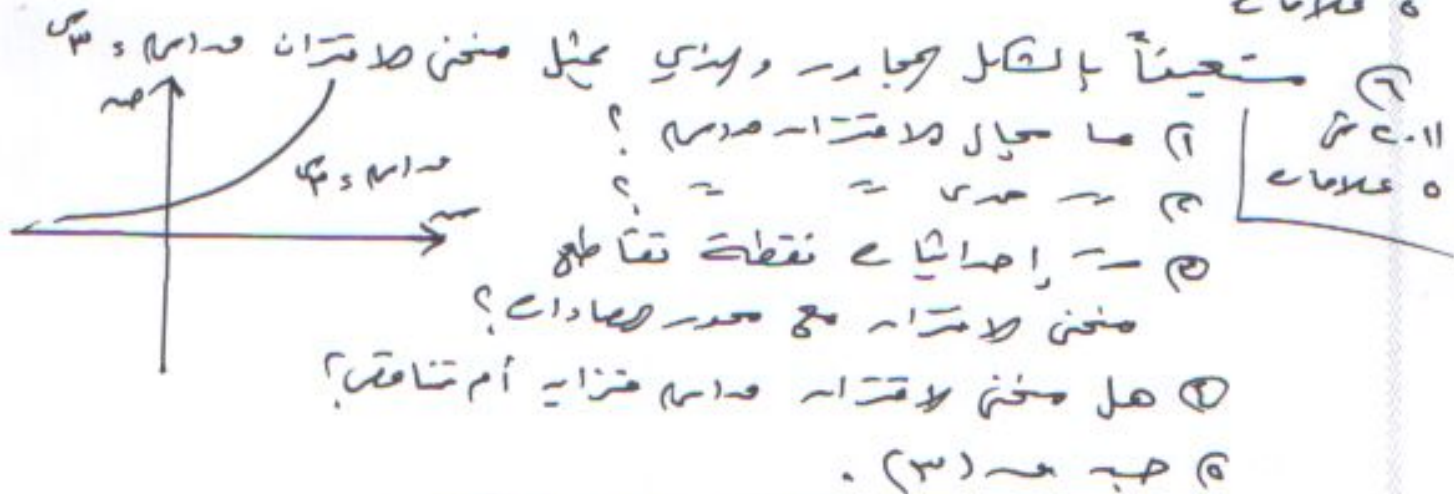 ٥ علامات
٦) مستعيناً بالشكل المجاور والذي يمثل منحنى الاقتران ق(س) = ٣^س
٢٠١١ ش
٥ علامات
ص
س
ق(س) = ٣^س
١) ما مجال الاقتران ق(س) ؟
٢) = مدى = = ؟
٣) = إحداثيات نقطة تقاطع
منحنى الاقتران مع محور الصادات ؟
٤) هل منحنى الاقتران ق(س) متزايد أم متناقص ؟
٥) جد ق(٣) .